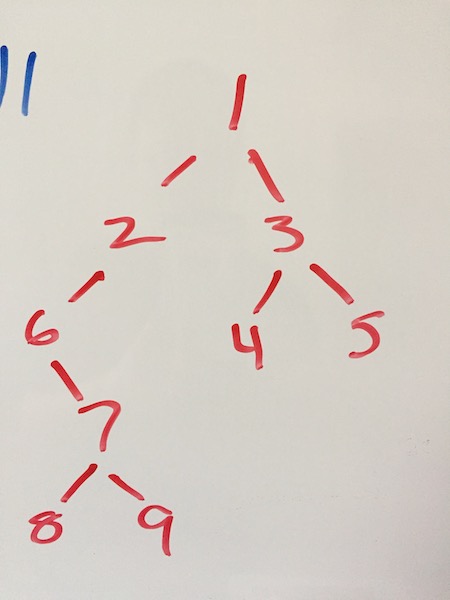 1
2 3
6 4 5
7
8 9